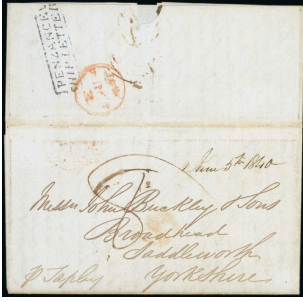 PENZANCE
SHIP LETTER
June 5th 1840
Messrs John Buckley & Sons
Broadhead
Saddleworth
Yorkshire
p Tapley